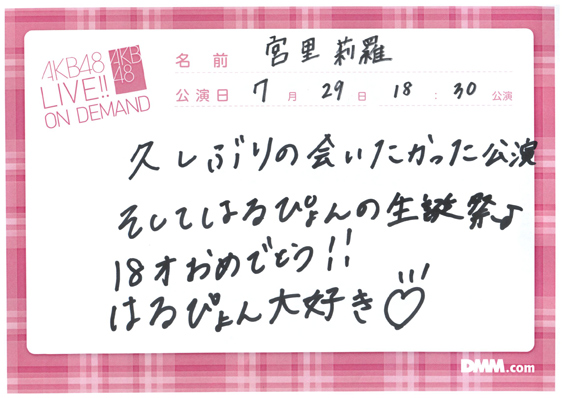 AKB48
LIVE!!
ON DEMAND
AKB
48
名前 宮里莉羅
公演日 7月29日 18:30公演
久しぶりの会いたかった公演
そしてはるぴょんの生誕祭♪
18才おめでとう!!
はるぴょん大好き♡
DMM.com